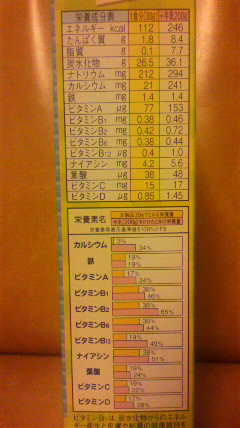 栄養成分表 1食分(30g) +牛乳200g
エネルギー kcal 112 246
たんぱく質 g 1.8 8.4
脂質 g 0.1 7.7
炭水化物 g 26.5 36.1
ナトリウム mg 212 294
カルシウム mg 21 241
鉄 mg 1.4 1.4
ビタミンA μg 77 153
ビタミンB1 mg 0.38 0.46
ビタミンB2 mg 0.42 0.72
ビタミンB6 mg 0.38 0.44
ビタミンB12 μg 0.4 1.0
ナイアシン mg 4.2 5.6
葉酸 μg 38 48
ビタミンC mg 15 17
ビタミンD μg 0.85 1.45
栄養素名
カルシウム 3% 34%
鉄 19% 19%
ビタミンA 17% 34%
ビタミンB1 38% 46%
ビタミンB2 38% 65%
ビタミンB6 38% 44%
ビタミンB12 19% 49%
ナイアシン 38% 51%
葉酸 19% 24%
ビタミンC 19% 22%
ビタミンD 17% 29%
ビタミンB1は、炭水化物からのエネル
ギー産生と皮膚や粘膜の健康維持を